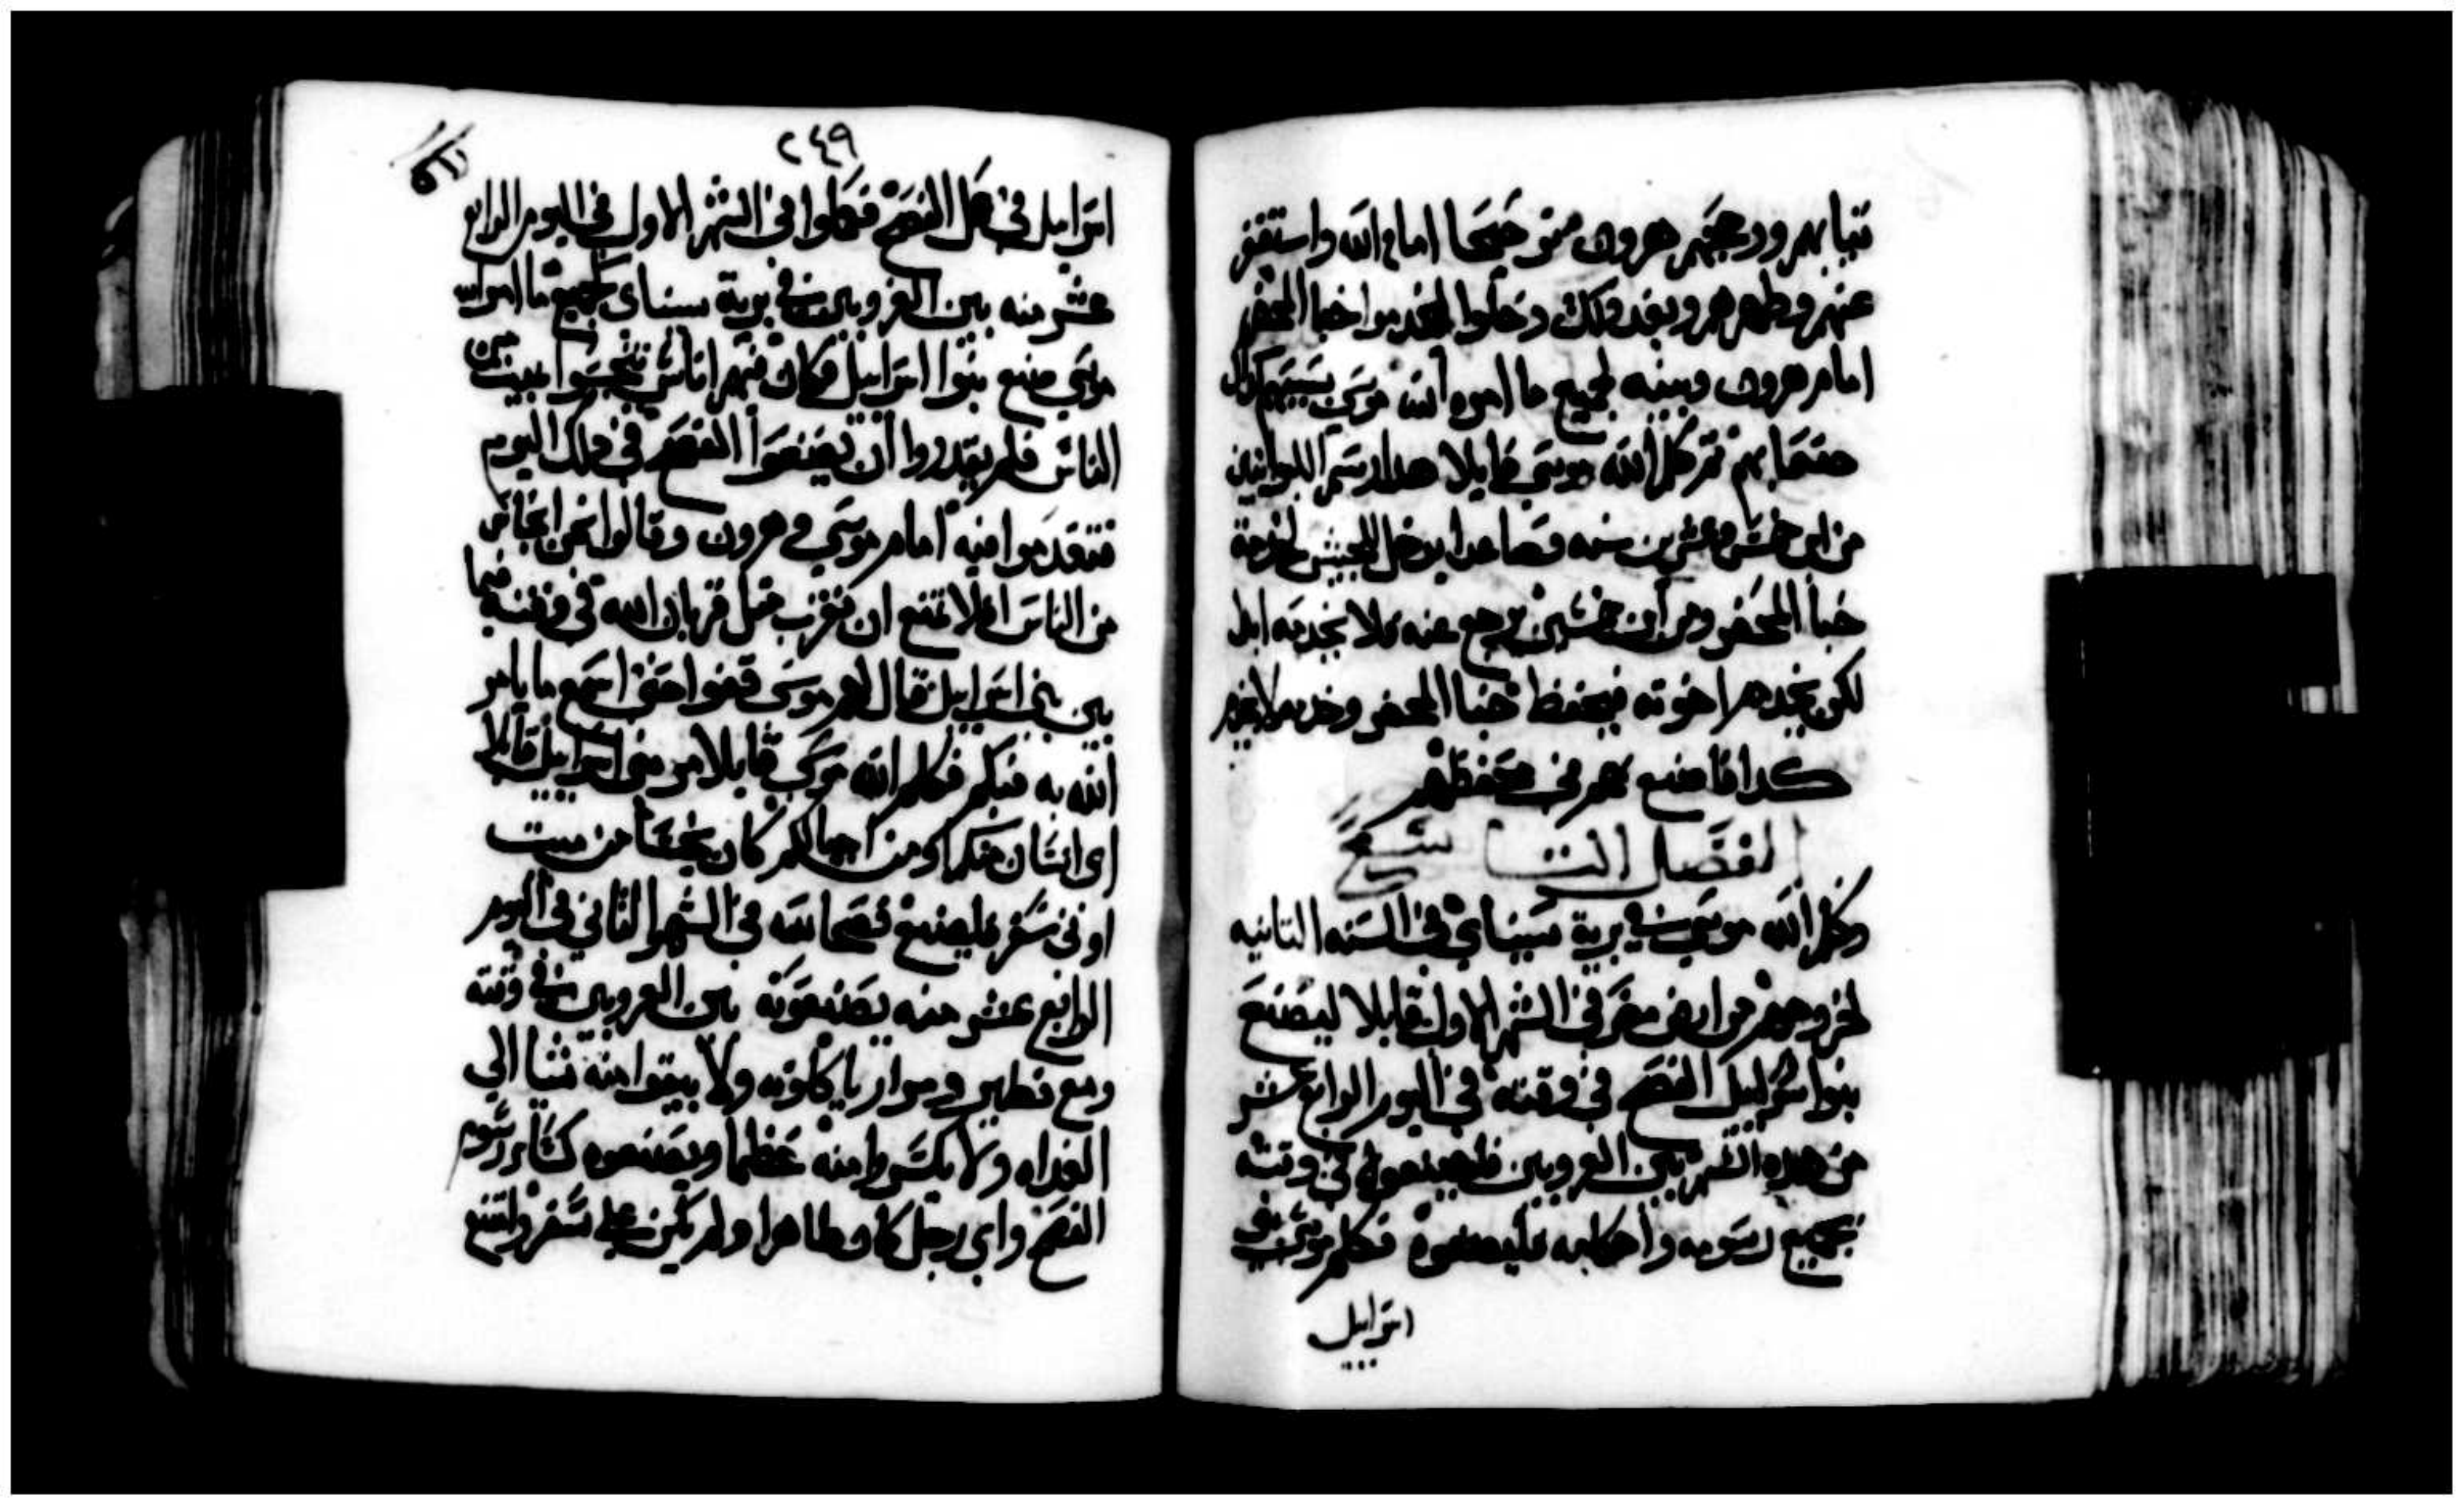 ثيابهم ورجحهم هرون ترجيحا امام الله واستغفر
عنهم وطهرهم وبعد ذلك دخلوا ليخدموا خبا المحضر
امام هرون وبنيه لجميع ما امره الله موسي بسببهم كذلك
صنعا بهم ثم كلم الله موسي قايلا هدا رسم الليوانيين
من ابن خمس وعشرين سنه فصاعدا يدخل للجيش لخدمة
خبا المحضر ومن ابن خمسين يرجع عنه ولا يخدمه ابدا
لكن يخدم اخوته فيحفظ خبا المحضر وخدمه لا يخدم
كدا فاصنع بهم في محفظهم
الفصل التاسع
وكلم الله موسي في برية سيناي في السنه التانيه
لخروجهم من ارض مصر في الشهر الاول قايلا ليصنع
بنوا اسراييل الفصح في وقته في اليوم الرابع عشر
من هده الشهر بين الغروبين فليصنعوه في وقته
بجميع رسومه وأحكامه فليصنعوه فكلم موسي بني
اسراييل
٢٤٩
اسراييل في عمل الفصح فعملوا في الشهر الاول في اليوم الرابع
عشر منه بين الغروبين في برية سيناى لجميع ما امر الله
موسي صنع بنوا اسراييل فكان منهم اناس تنجسوا بميت من
الناس فلم يقدروا أن يصنعوا الفصح في دلك اليوم
فتقدموا فيه امام موسي و هرون وقالوا نحن انجاس
من الناس افلا نمنع ان نقرب مثل قربان الله في وقته فيما
بين بني اسراييل فقال لهم موسي قفوا حتى اسمع ما يامر
الله به فيكم فكلم الله موسي قايلا مر بني اسراييل قايلا
اى انسان منكم او من اجيالكم كان نجسا من ميت
او في سفر فليصنع فصحا لله في الشهر الثاني في اليوم
الرابع عشر منه يصنعونه بين الغروبين في وقته
ومع فطير ومرار ياكلونه ولا يبقوا منه شيا الي
الغداه ولا يكسروا منه عظما ويصنعوه كسائر رسوم
الفصح واي رجل كان طاهرا ولم يكن علي سفر وامتنع